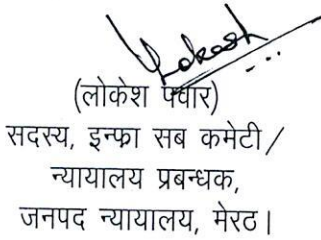 Lokesh
(लोकेश पंवार)
सदस्य, इन्फ्रा सब कमेटी/
न्यायालय प्रबन्धक,
जनपद न्यायालय, मेरठ।